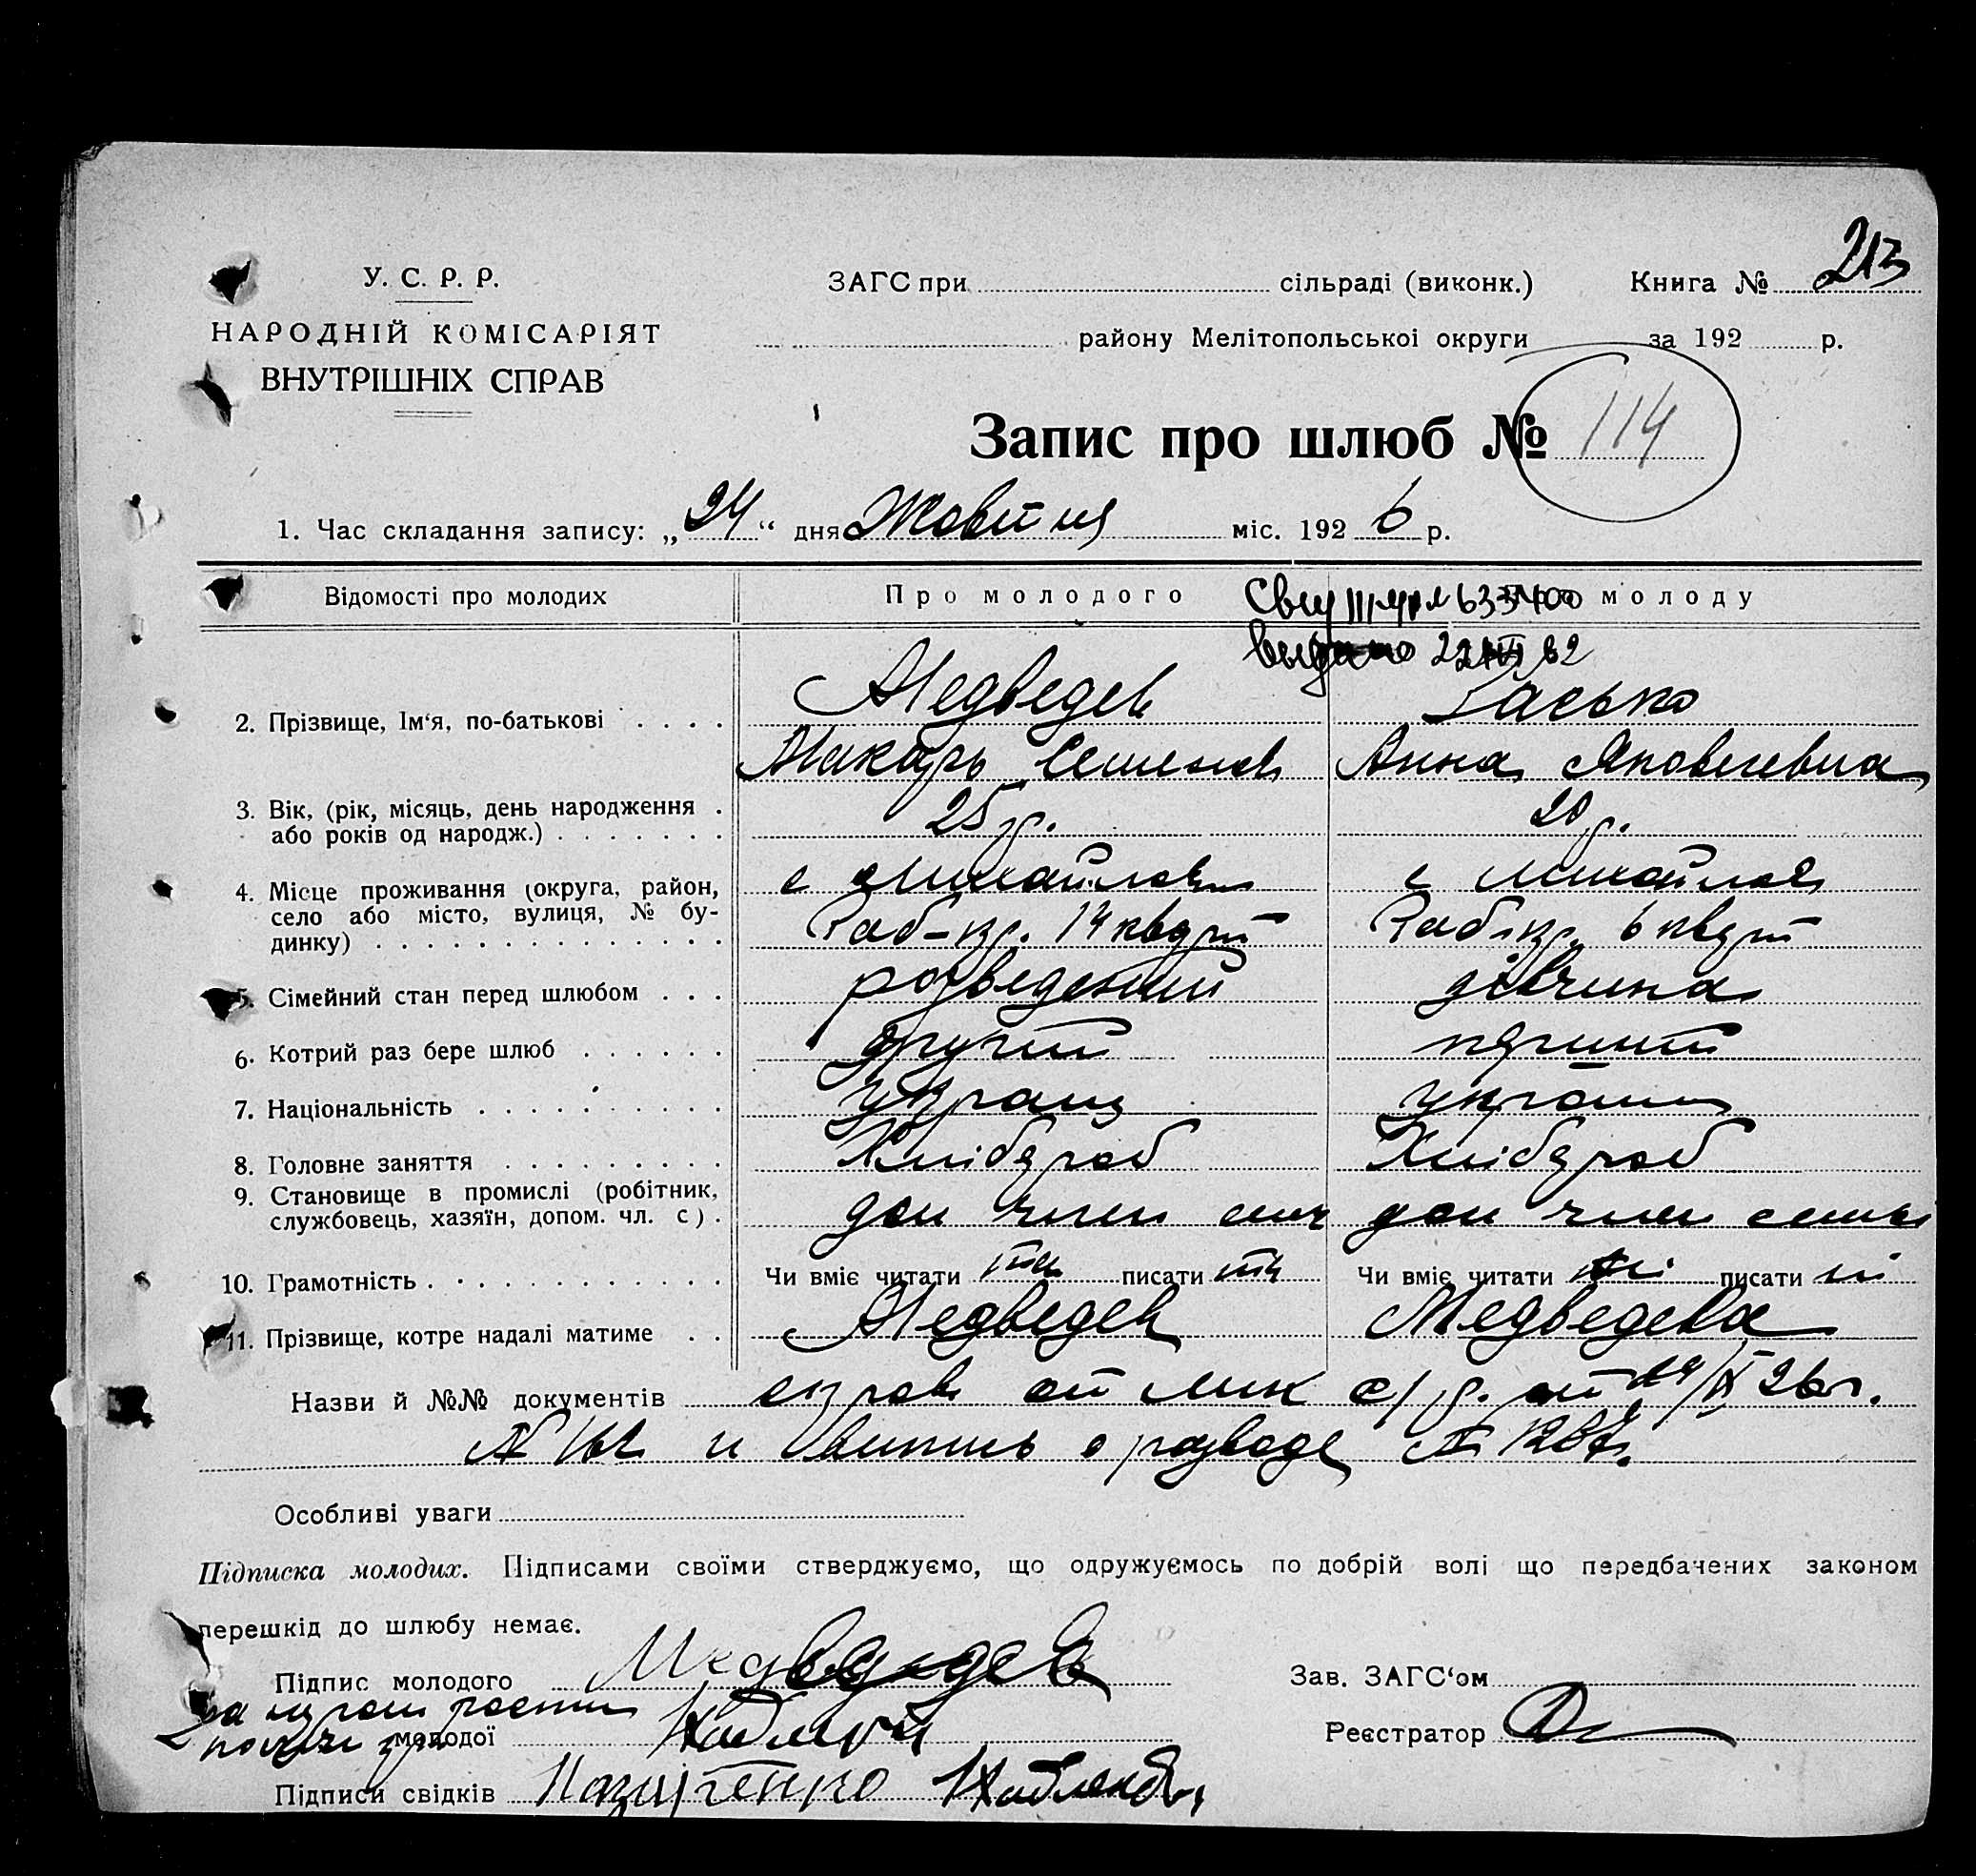 213
У. С. Р. Р.
ЗАГС при сільраді (виконк.) Книга №
НАРОДНІЙ КОМІСАРІЯТ
району Мелітопольської округи за 192 р.
ВНУТРІШНІХ СПРАВ
Запис про шлюб № 114
1. Час складання запису: „24“ дня Жовтня міс. 1926 р.
Відомості про молодих Про молодого молоду
выдано 22 62
2. Прізвище, Ім‘я, по-батькові . . . . Медведев
Макарь Анна Яковлевна
3. Вік, (рік, місяць, день народження . 25 р. 20 р.
або років од народж.) . . . . . . .
4. Місце проживання (округа, район, с Михайловка с Михайловка
село або місто, вулиця, № бу-
динку) . . . . . . . . . . . . . .
5. Сімейний стан перед шлюбом . . . розведений дівчина
6. Котрий раз бере шлюб . . . . . . другий перший
7. Національність . . . . . . . . . . украин украин
8. Головне заняття . . . . . . . . . Хлібороб Хлібороб
9. Становище в промислі (робітник,
службовець, хазяїн, допом. чл. с) . доп член доп член семьи
10. Грамотність . . . . . . . . . . . . Чи вміє читати так писати так Чи вміє читати ні писати ні
11. Прізвище, котре надалі матиме . . Медведев Медведева
Назви й №№ документів справ от Мих с/р. от 26 г.
и выпись о разводе №
Особливі уваги
Підписка молодих. Підписами своїми стверджуємо, що одружуємось по добрій волі що передбачених законом
перешкід до шлюбу немає.
Підпис молодого Медведев Зав. ЗАГС‘ом
молодої Реєстратор
Підписи свідків